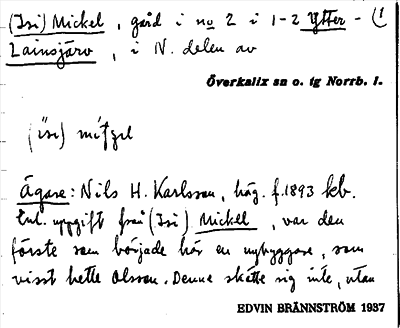 (Isi) Mickel, gård i no 2 i 1-2 Ytter- (1
Lainsjärv, i N. delen av
Överkalix sn o. tg Norrb. l.
(ísi) mítʃel
Ägare: Nils H. Karlsson, häg. f. 1893 kb.
Enl. uppgift från (Isi) Mickel, var den
förste som började här en nybyggare, som
visst hette Olsson. Denne skötte sig inte, utan
EDVIN BRÄNNSTRÖM 1937